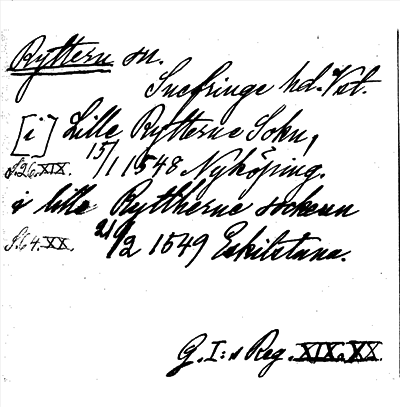 Ryttern sn.
Snefringe hd. Vst.
[i] Lille Rytterne Sokn,
S.26.XIX. 15/1 1548 Nyköping.
i lille Ryttherne sockenn
S.64.XX. 21/2 1549 Eskilstuna.
G. I:s Reg. XIX. XX.